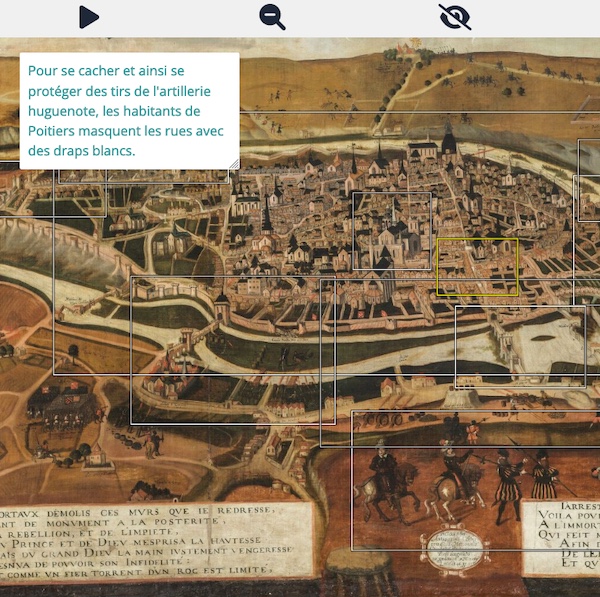 Pour se cacher et ainsi se
protéger des tirs de l'artillerie
huguenote, les habitants de
Poitiers masquent les rues avec
des draps blancs.
ORTAVX DEMOLIS CES MVRS QVE IE REDRESSE,
NT DE MONVMENT A LA POSTERITE,
REBELLION, ET DE L'IMPIETE,
V PRINCE ET DE DIEV MESPRISA LA HAVTESSE
AIS DV GRAND DIEV LA MAIN IVSTEMENT VENGERESSE
ESNVA DE POVVOIR SON INFIDELITE:
COMME VN FIER TORRENT DVN ROC EST LIMITE,
IARREST
VOILA POV
A L'IMMORT
QVI FEIT
AFIN D
DE LE
ET QV